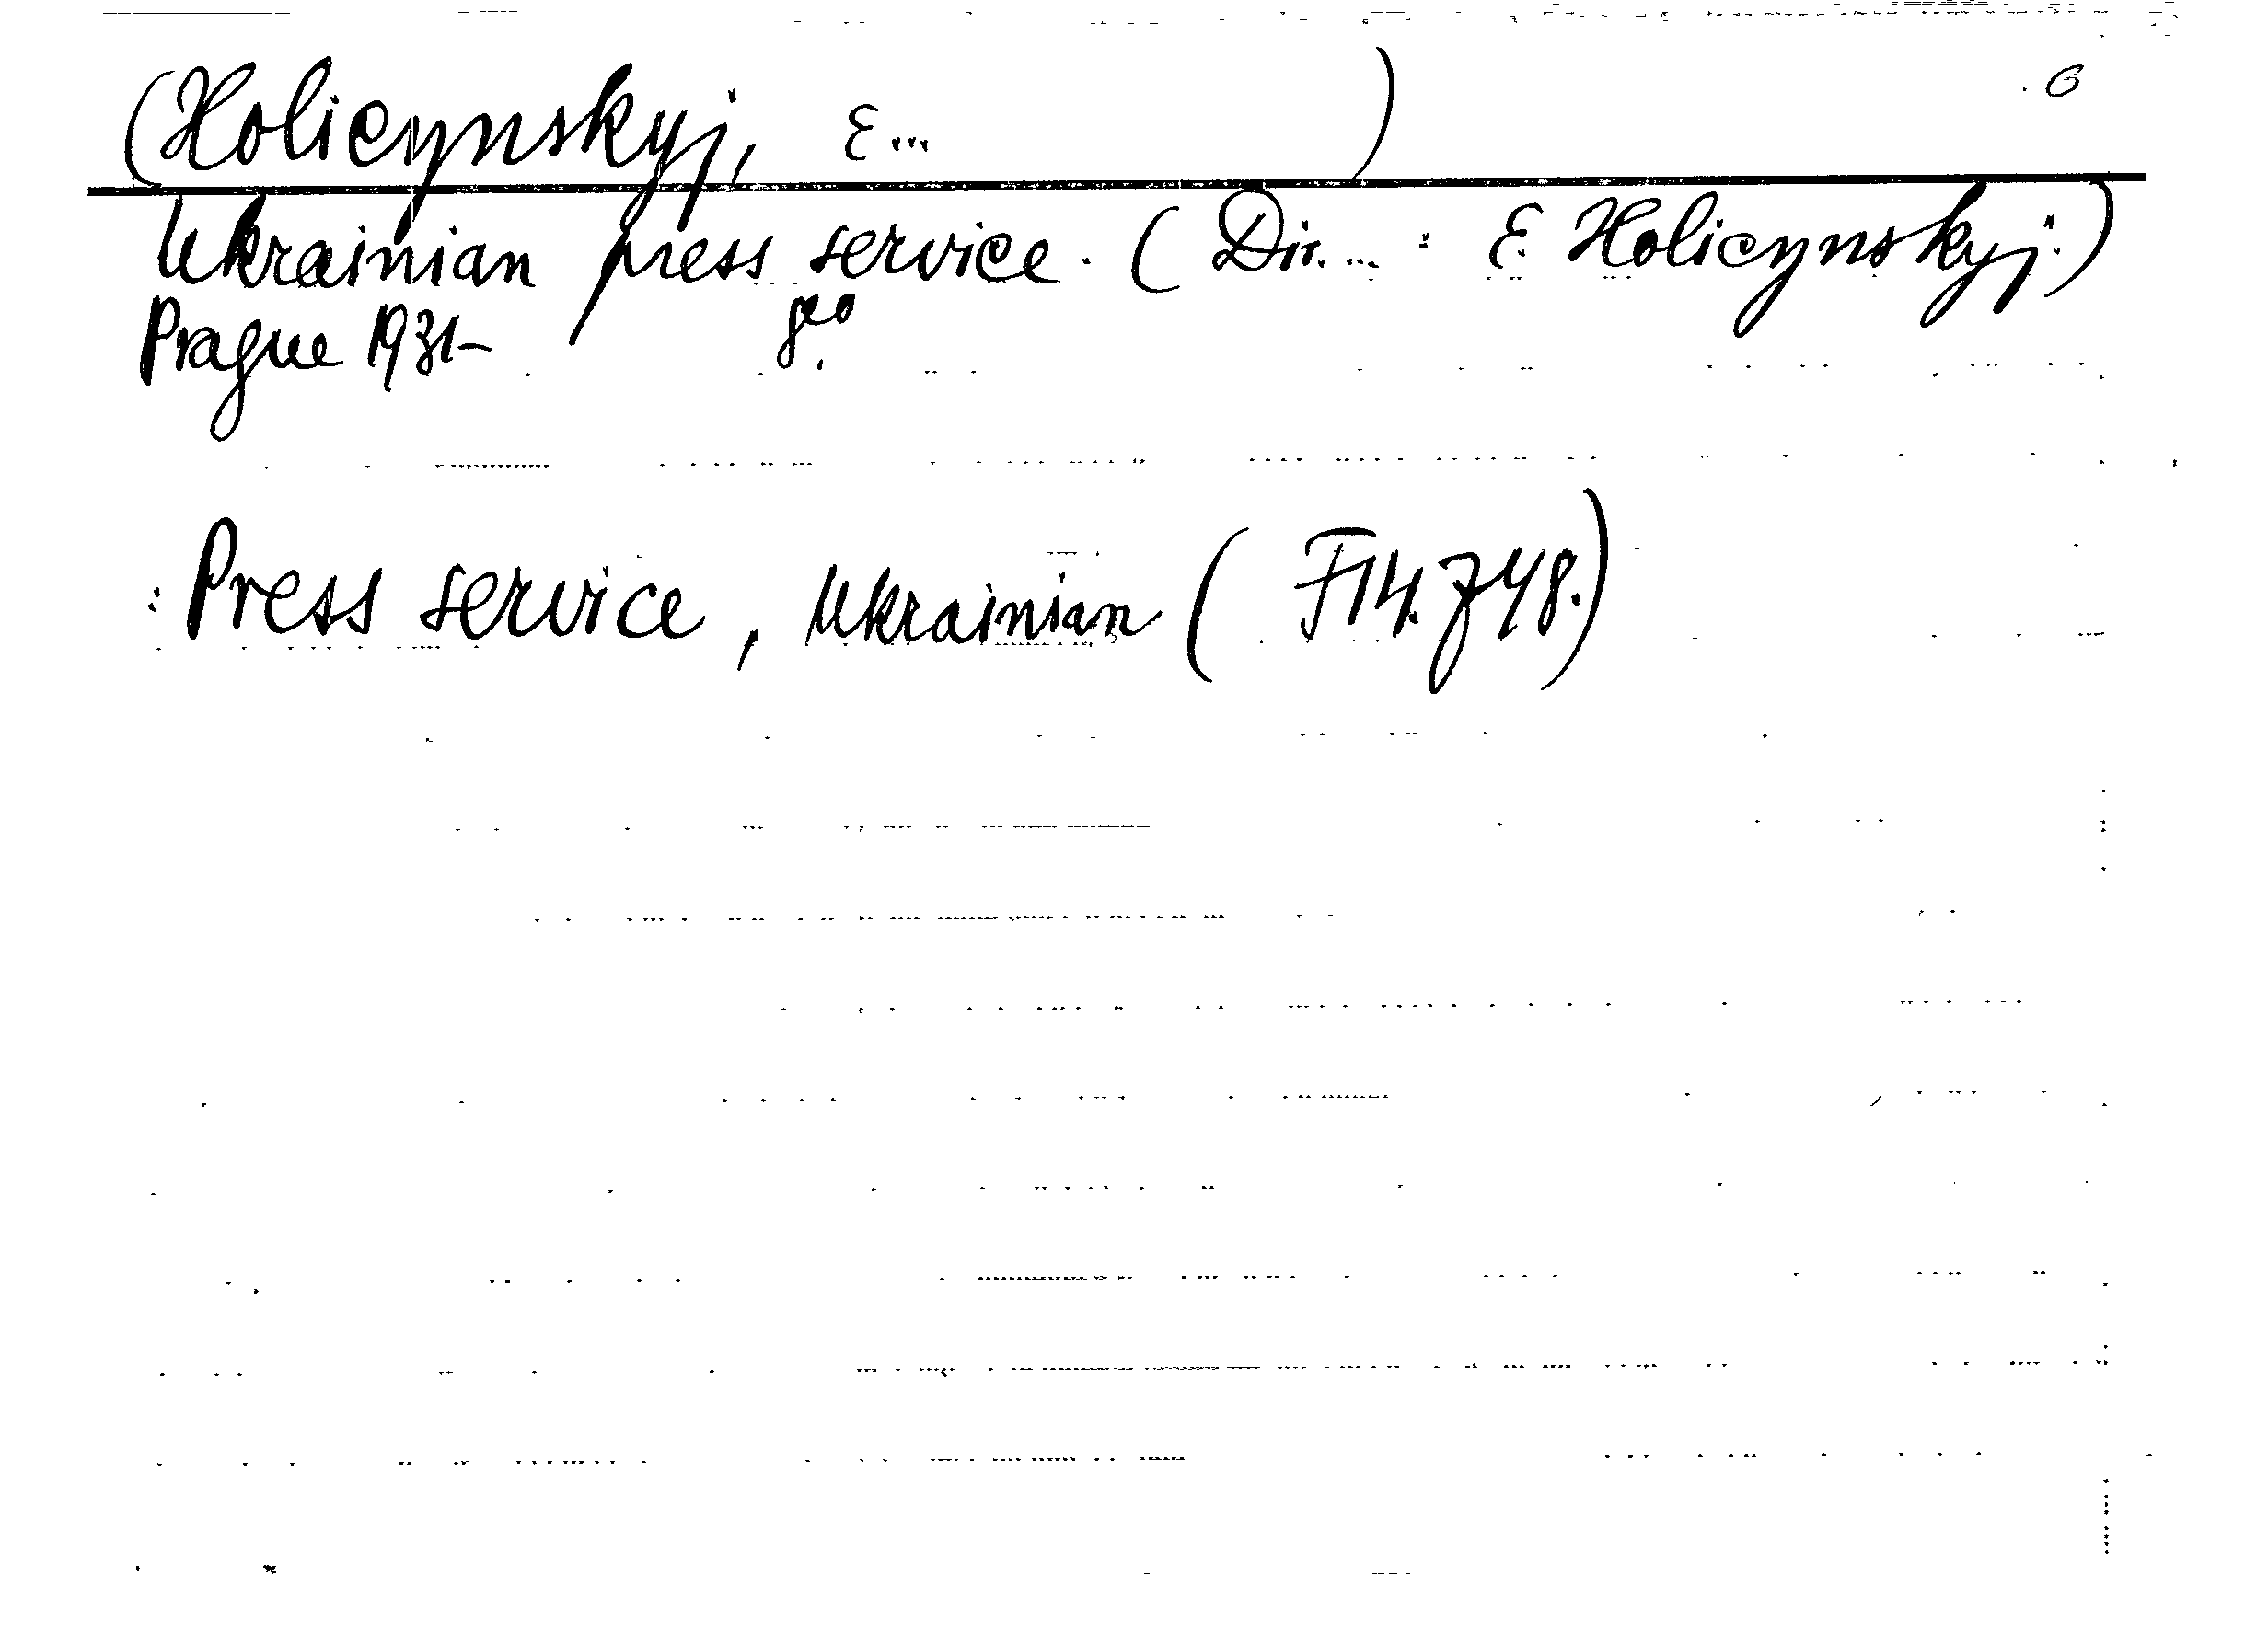 (Holicynskyj, E... )
Ukrainian press service. (Dir. ... : E. Holicynskyj.)
Prague 1931-
: Press service, Ukrainian (